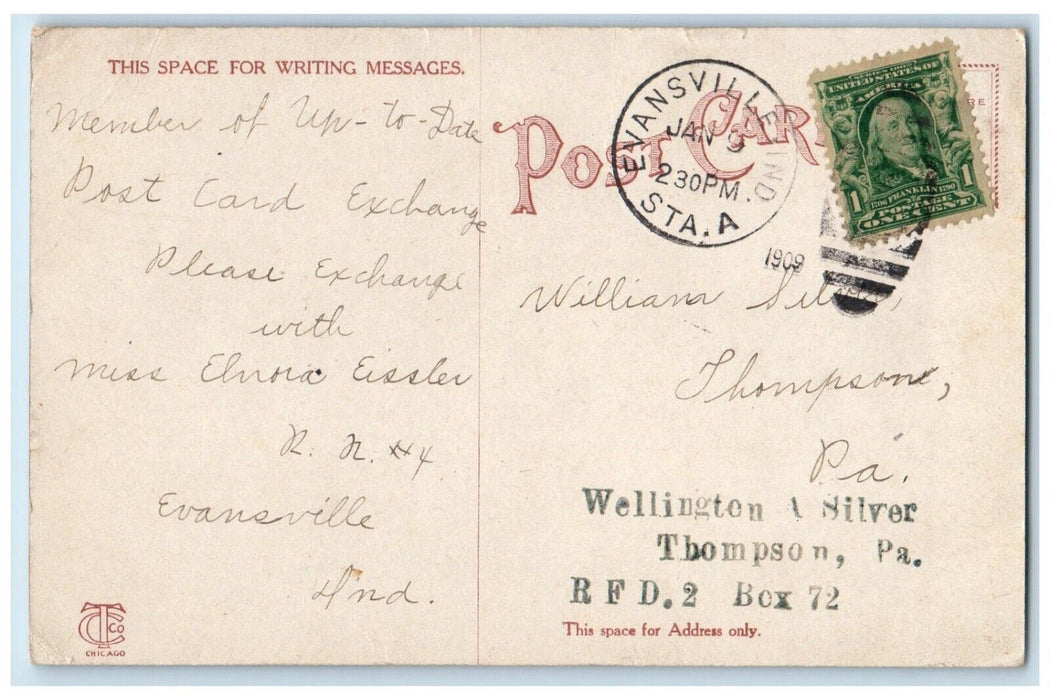 THIS SPACE FOR WRITING MESSAGES.
Member of Up-to-Date
Post Card Exchange
Please Exchange
with
Miss Elnora Eissler
R. R. #4
Evansville
Ind.
CTCo
CHICAGO
POST CARD
EVANSVILLE, IND.
JAN 9
230PM
STA. A
1909
SERIES 1902
UNITED STATES OF
AMERICA
1706 FRANKLIN 1790
1 POSTAGE 1
ONE CENT
William
Thompson,
Pa.
Wellington A Silver
Thompson, Pa.
R F D. 2 Box 72
This space for Address only.